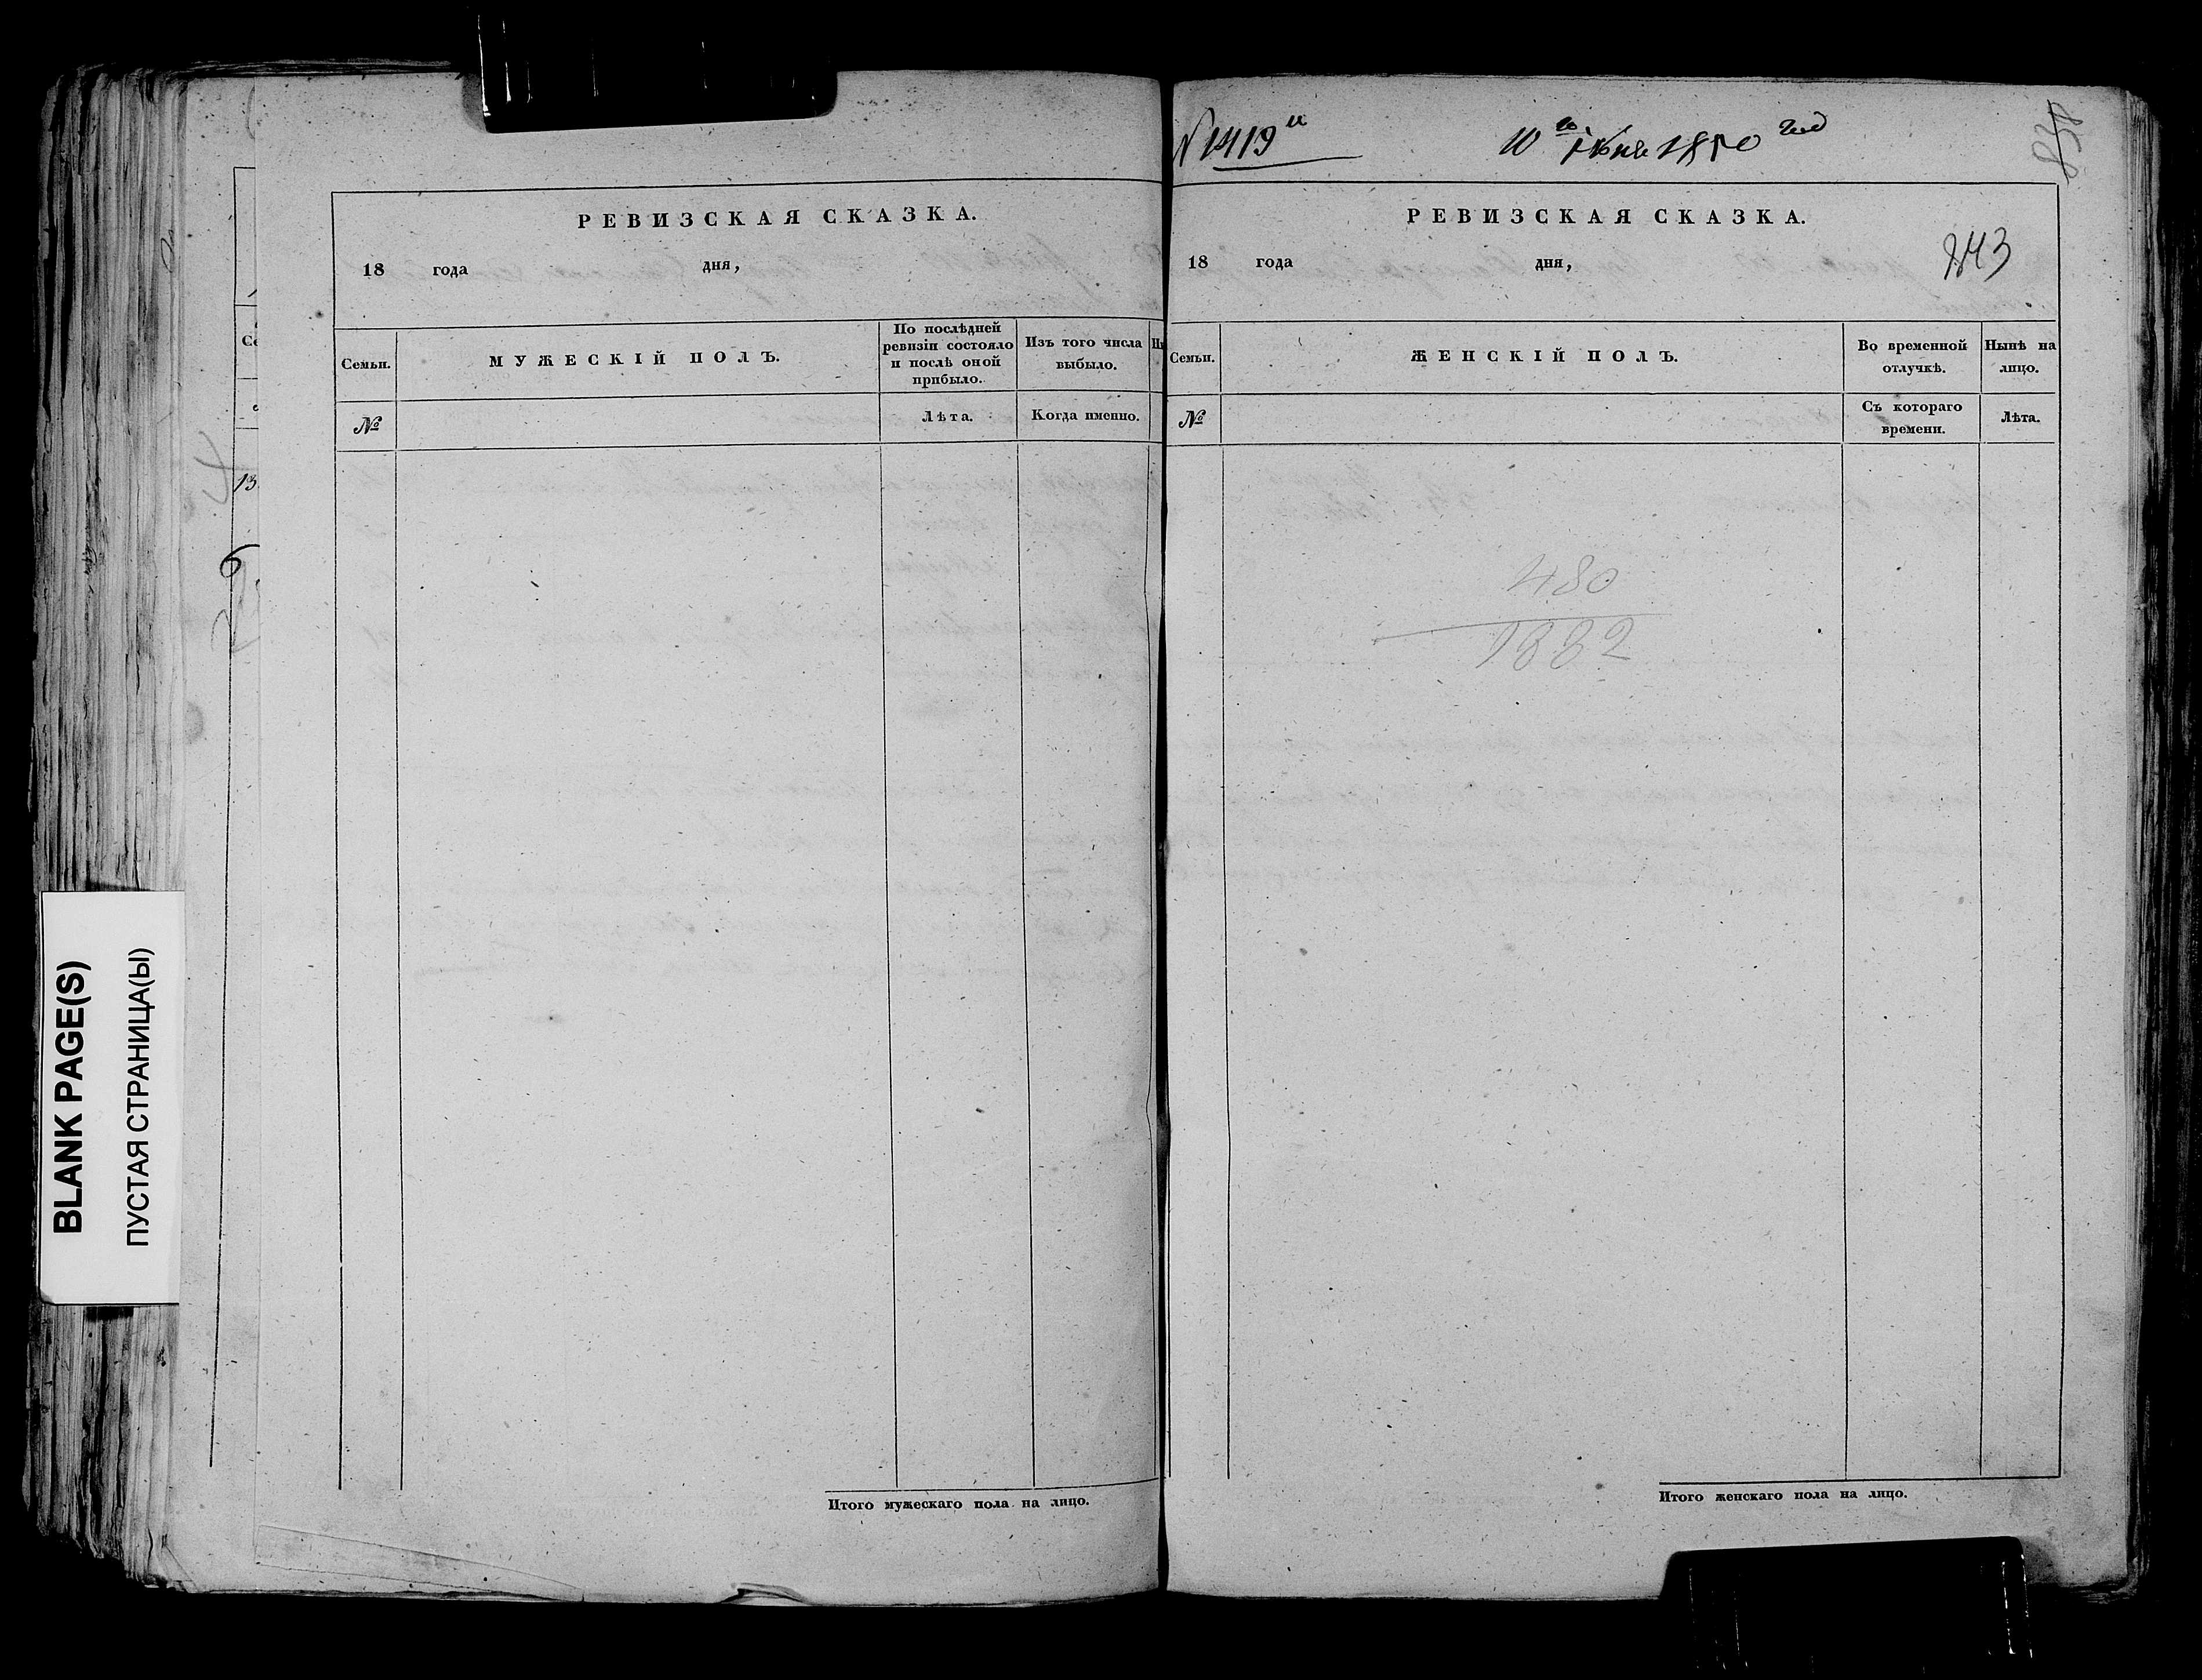 РЕВИЗСКАЯ СКАЗКА.
18 года дня,
Семьи. МУЖЕСКІЙ ПОЛЪ. По послѣдней ревизіи состояло и послѣ оной прибыло. Изъ того числа выбыло.
№ Лѣта. Когда именно.
Итого мужескаго пола на лицо.
N 1419й 10го Іюня 1850 год
РЕВИЗСКАЯ СКАЗКА.
18 года дня,
843
Семьи. ЖЕНСКІЙ ПОЛЪ. Во временной отлучкѣ. Нынѣ на лицо.
№ Съ котораго времени. Лѣта.
480
1882
Итого женскаго пола на лицо.
13
6
BLANK PAGE(S)
ПУСТАЯ СТРАНИЦА(Ы)